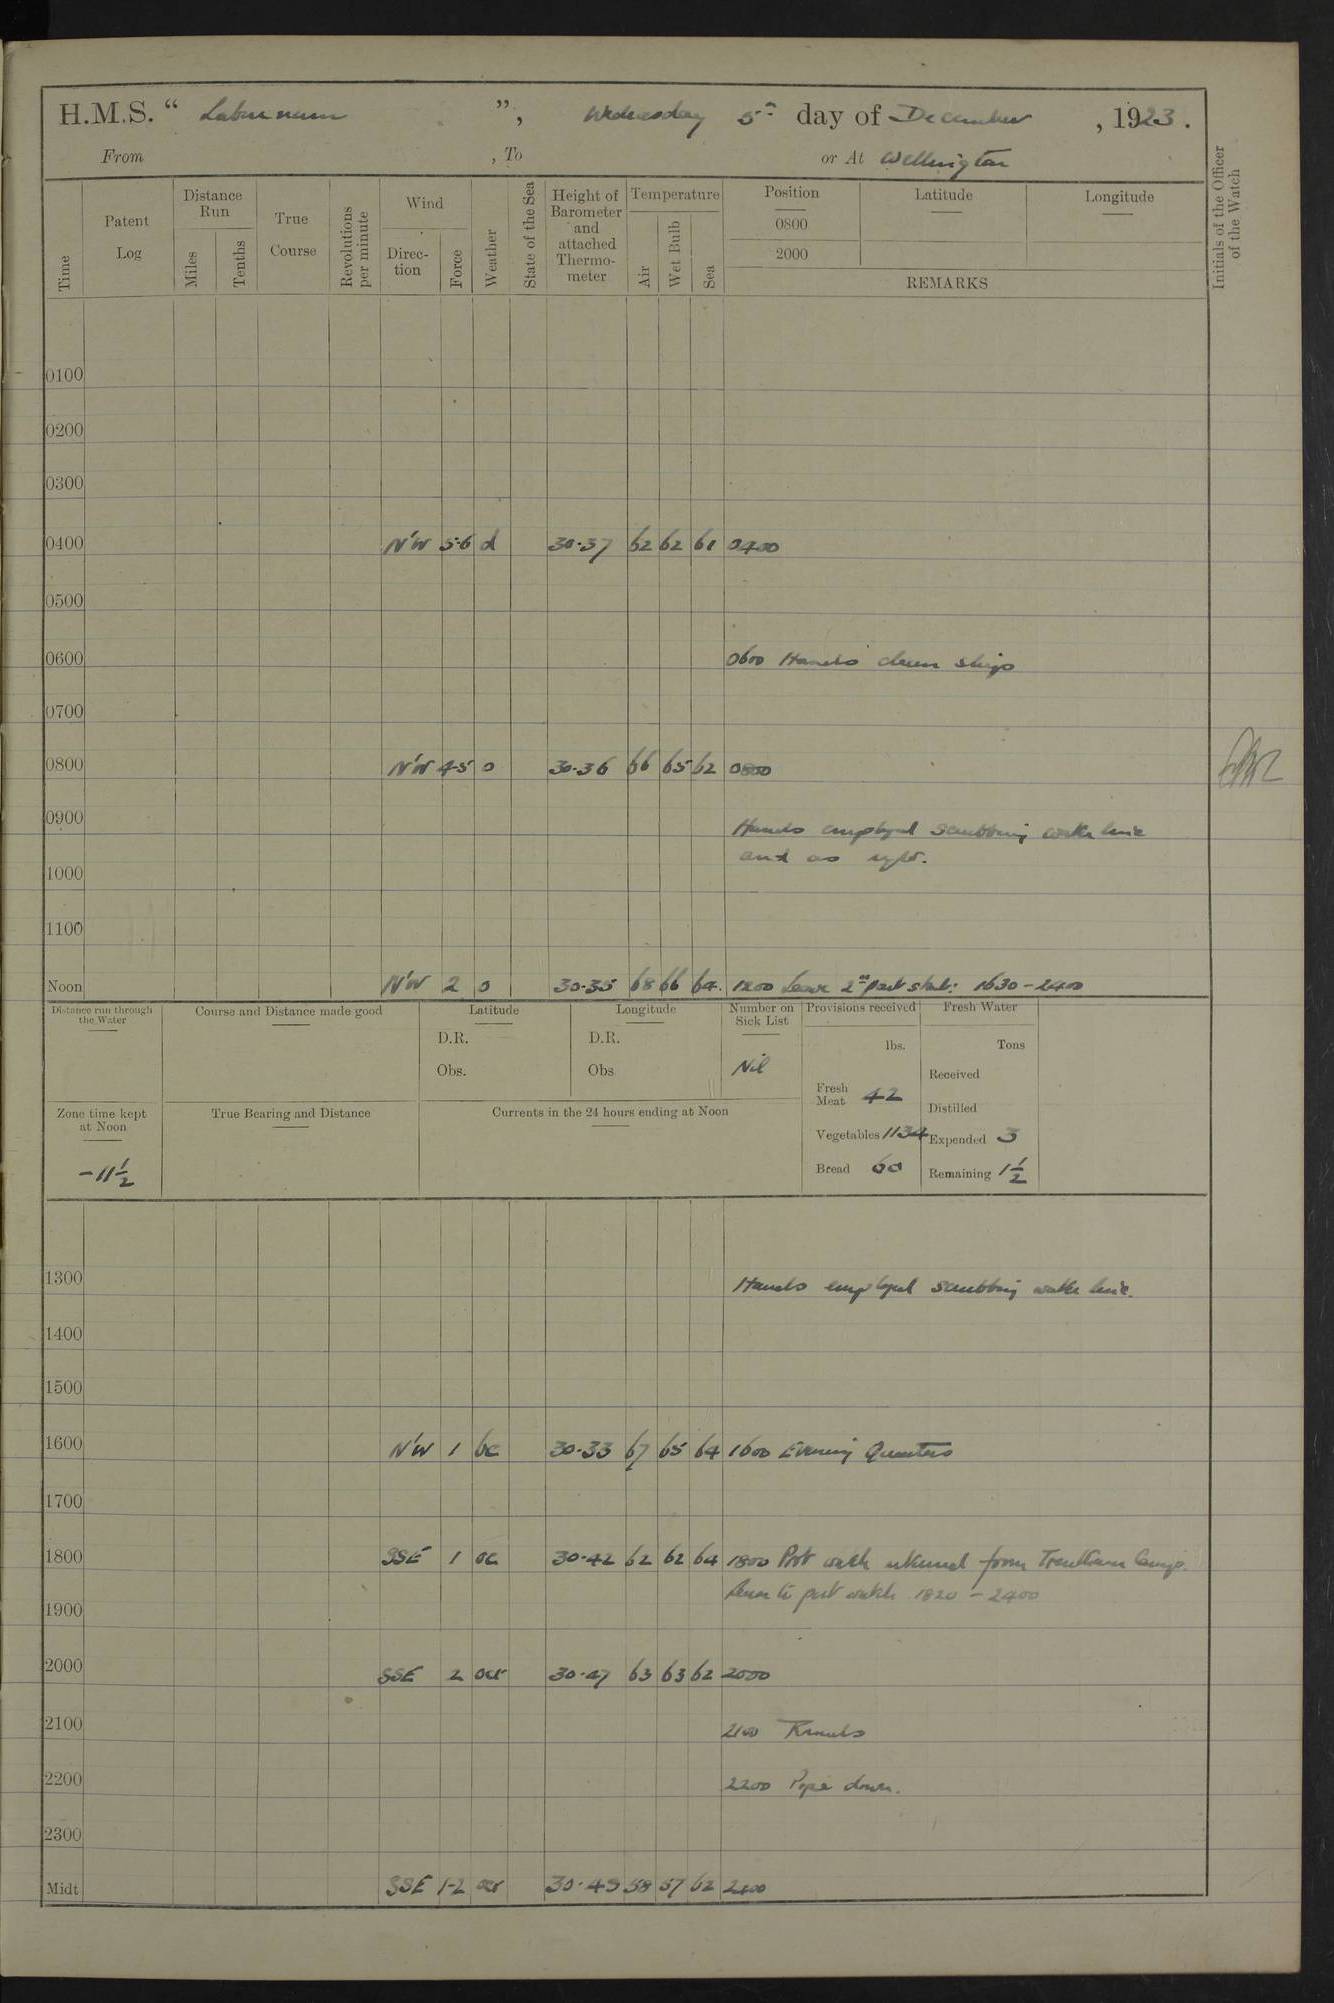 H.M.S. “ Laburnum ”, Wednesday 5th day of December , 1923.
From , To or At Wellington
Time
Patent Log
Distance Run
Miles
Tenths
True Course
Revolutions per minute
Wind
Direc- tion
Force
Weather
State of the Sea
Height of Barometer and attached Thermo- meter
Temperature
Air
Wet Bulb
Sea
Position
0800
2000
Latitude
Longitude
REMARKS
Initials of the Officer of the Watch
0100
0200
0300
0400 N'W 5-6 d 30.37 62 62 61 0400
0500
0600 0600 Hands clean ship
0700
0800 N'W 4-5 o 30.36 66 65 62 0800
0900 Hands employed scrubbing water line
and as
1000
1100
Noon N'W 2 o 30.35 68 66 64. 1200 Leave 2nd part 1630-2400
Distance run through the Water
Course and Distance made good
Latitude
D.R.
Obs.
Longitude
D.R.
Obs
Number on Sick List
Nil
Provisions received
lbs.
Fresh Meat 42
Vegetables 1134
Bread 60
Fresh Water
Tons
Received
Distilled
Expended 3
Remaining 1½
Zone time kept at Noon
-11½
True Bearing and Distance
Currents in the 24 hours ending at Noon
1300 Hands employed scrubbing water line.
1400
1500
1600 N'W 1 bc 30.33 67 65 64 1600 Evening Quarters
1700
1800 SSE 1 oc 30.42 62 62 64 1800 Port watch returned from Trentham Camp.
Leave to port watch 1820-2400
1900
2000 SSE 2 ocr 30.47 63 63 62 2000
2100 2100 Rounds
2200 2200 Pipe down.
2300
Midt SSE 1-2 ocr 30.49 58 57 62 2400